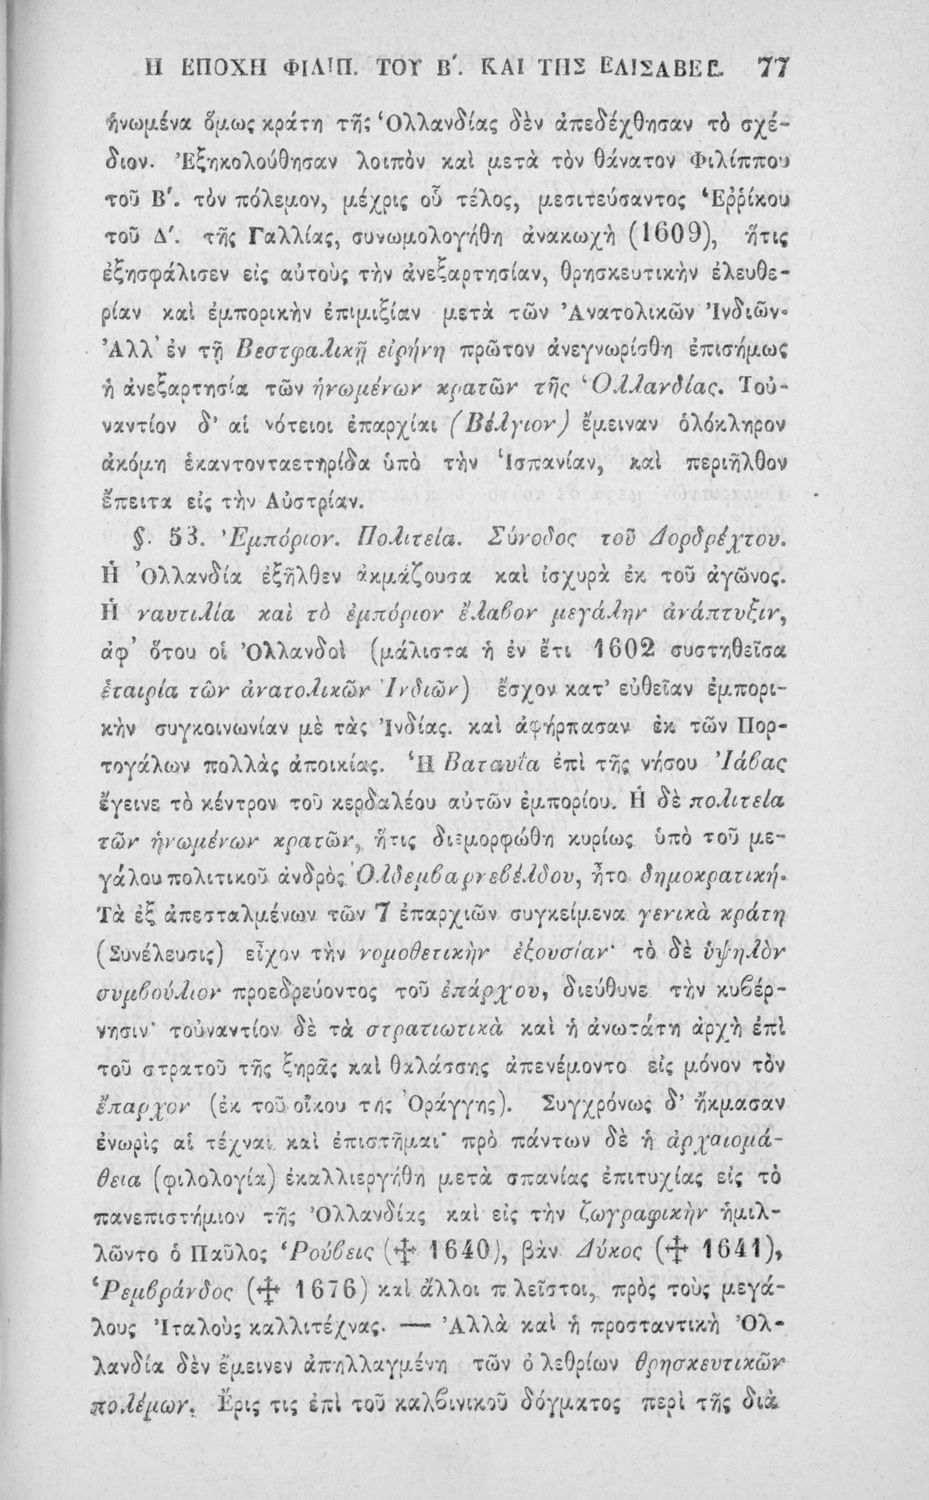 Η ΕΠΟΧΗ ΦΙΛΙΠ. ΤΟΥ Β΄. ΚΑΙ ΤΗΣ ΕΛΙΣΑΒΕΤ. 77
ἡνωμένα ὅμως κράτη τῆς Ὁλλανδίας δὲν ἀπεδέχθησαν τὸ σχέ-
διον. Ἐξηκολούθησαν λοιπὸν καὶ μετὰ τὸν θάνατον Φιλίππου
τοῦ Β΄. τὸν πόλεμον, μέχρις οὗ τέλος, μεσιτεύσαντος Ἑῤῥίκου
τοῦ Δ΄. τῆς Γαλλίας, συνωμολογήθη ἀνακωχὴ (1609), ἥτις
ἐξησφάλισεν εἰς αὐτοὺς τὴν ἀνεξαρτησίαν, θρησκευτικὴν ἐλευθε-
ρίαν καὶ ἐμπορικὴν ἐπιμιξίαν μετὰ τῶν Ἀνατολικῶν Ἰνδιῶν.
Ἀλλ' ἐν τῇ Βεστφαλικῇ εἰρήνῃ πρῶτον ἀνεγνωρίσθη ἐπισήμως
ἡ ἀνεξαρτησία τῶν ἡνωμένων κρατῶν τῆς Ὁλλανδίας. Τοὐ-
ναντίον δ' αἱ νότειοι ἐπαρχίαι (Βέλγιον) ἔμειναν ὁλόκληρον
ἀκόμη ἑκαντονταετηρίδα ὑπὸ τὴν Ἱσπανίαν, καὶ περιῆλθον
ἔπειτα εἰς τὴν Αὐστρίαν.
§. 53. Ἐμπόριον. Πολιτεία. Σύνοδος τοῦ Δορδρέχτου.
Ἡ Ὀλλανδία ἐξῆλθεν ἀκμάζουσα καὶ ἰσχυρὰ ἐκ τοῦ ἀγῶνος.
Ἡ ναυτιλία καὶ τὸ ἐμπόριον ἔλαβον μεγάλην ἀνάπτυξιν,
ἀφ' ὅτου οἱ Ὀλλανδοὶ (μάλιστα ἡ ἐν ἔτι 1602 συστηθεῖσα
ἑταιρία τῶν ἀνατολικῶν Ἰνδιῶν) ἔσχον κατ' εὐθεῖαν ἐμπορι-
κὴν συγκοινωνίαν μὲ τὰς Ἰνδίας. καὶ ἀφήρπασαν ἐκ τῶν Πορ-
τογάλων πολλὰς ἀποικίας. Ἡ Βαταυΐα ἐπὶ τῆς νήσου Ἰάβας
ἔγεινε τὸ κέντρον τοῦ κερδαλέου αὐτῶν ἐμπορίου. Ἡ δὲ πολιτεία
τῶν ἡνωμένων κρατῶν, ἥτις διεμορφώθη κυρίως ὑπὸ τοῦ με-
γάλου πολιτικοῦ ἀνδρὸς Ὀλδεμβαρνεβέλδου, ἦτο δημοκρατική.
Τὰ ἐξ ἀπεσταλμένων τῶν 7 ἐπαρχιῶν συγκείμενα γενικὰ κράτη
(Συνέλευσις) εἶχον τὴν νομοθετικὴν ἐξουσίαν· τὸ δὲ ὑψηλὸν
συμβούλιον προεδρεύοντος τοῦ ἐπάρχου, διεύθυνε τὴν κυβέρ-
νησιν· τοὐναντίον δὲ τὰ στρατιωτικὰ καὶ ἡ ἀνωτάτη ἀρχὴ ἐπὶ
τοῦ στρατοῦ τῆς ξηρᾶς καὶ θαλάσσης ἀπενέμοντο εἰς μόνον τὸν
ἔπαρχον (ἐκ τοῦ οἴκου τῆς Ὀράγγης). Συγχρόνως δ' ἤκμασαν
ἐνωρὶς αἱ τέχναι καὶ ἐπιστῆμαι· πρὸ πάντων δὲ ἡ ἀρχαιομά-
θεια (φιλολογία) ἐκαλλιεργήθη μετὰ σπανίας ἐπιτυχίας εἰς τὸ
πανεπιστήμιον τῆς Ὀλλανδίας καὶ εἰς τὴν ζωγραφικὴν ἡμιλ-
λῶντο ὁ Παῦλος Ῥούβεις (✝ 1640), βὰν Δύκος (✝ 1641),
Ῥεμβράνδος (✝ 1676) καὶ ἄλλοι πλεῖστοι, πρὸς τοὺς μεγά-
λους Ἰταλοὺς καλλιτέχνας. — Ἀλλὰ καὶ ἡ προσταντικὴ Ὀλ-
λανδία δὲν ἔμεινεν ἀπηλλαγμένη τῶν ὀλεθρίων θρησκευτικῶν
πολέμων. Ἔρις τις ἐπὶ τοῦ καλβινικοῦ δόγματος περὶ τῆς διὰ